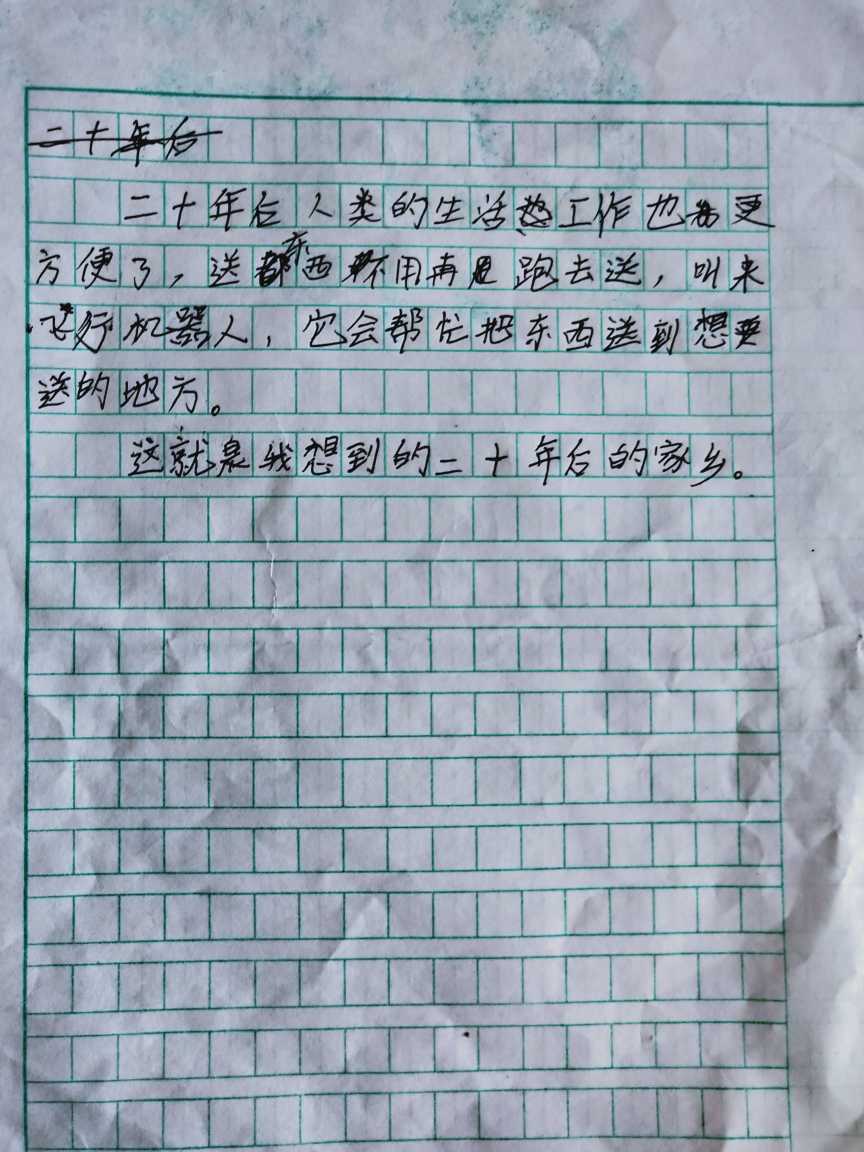 二十年后
二十年后人类的生活工作也更
方便了，送东西不用再跑去送，叫来
飞行机器人，它会帮忙把东西送到想要
送的地方。
这就是我想到的二十年后的家乡。